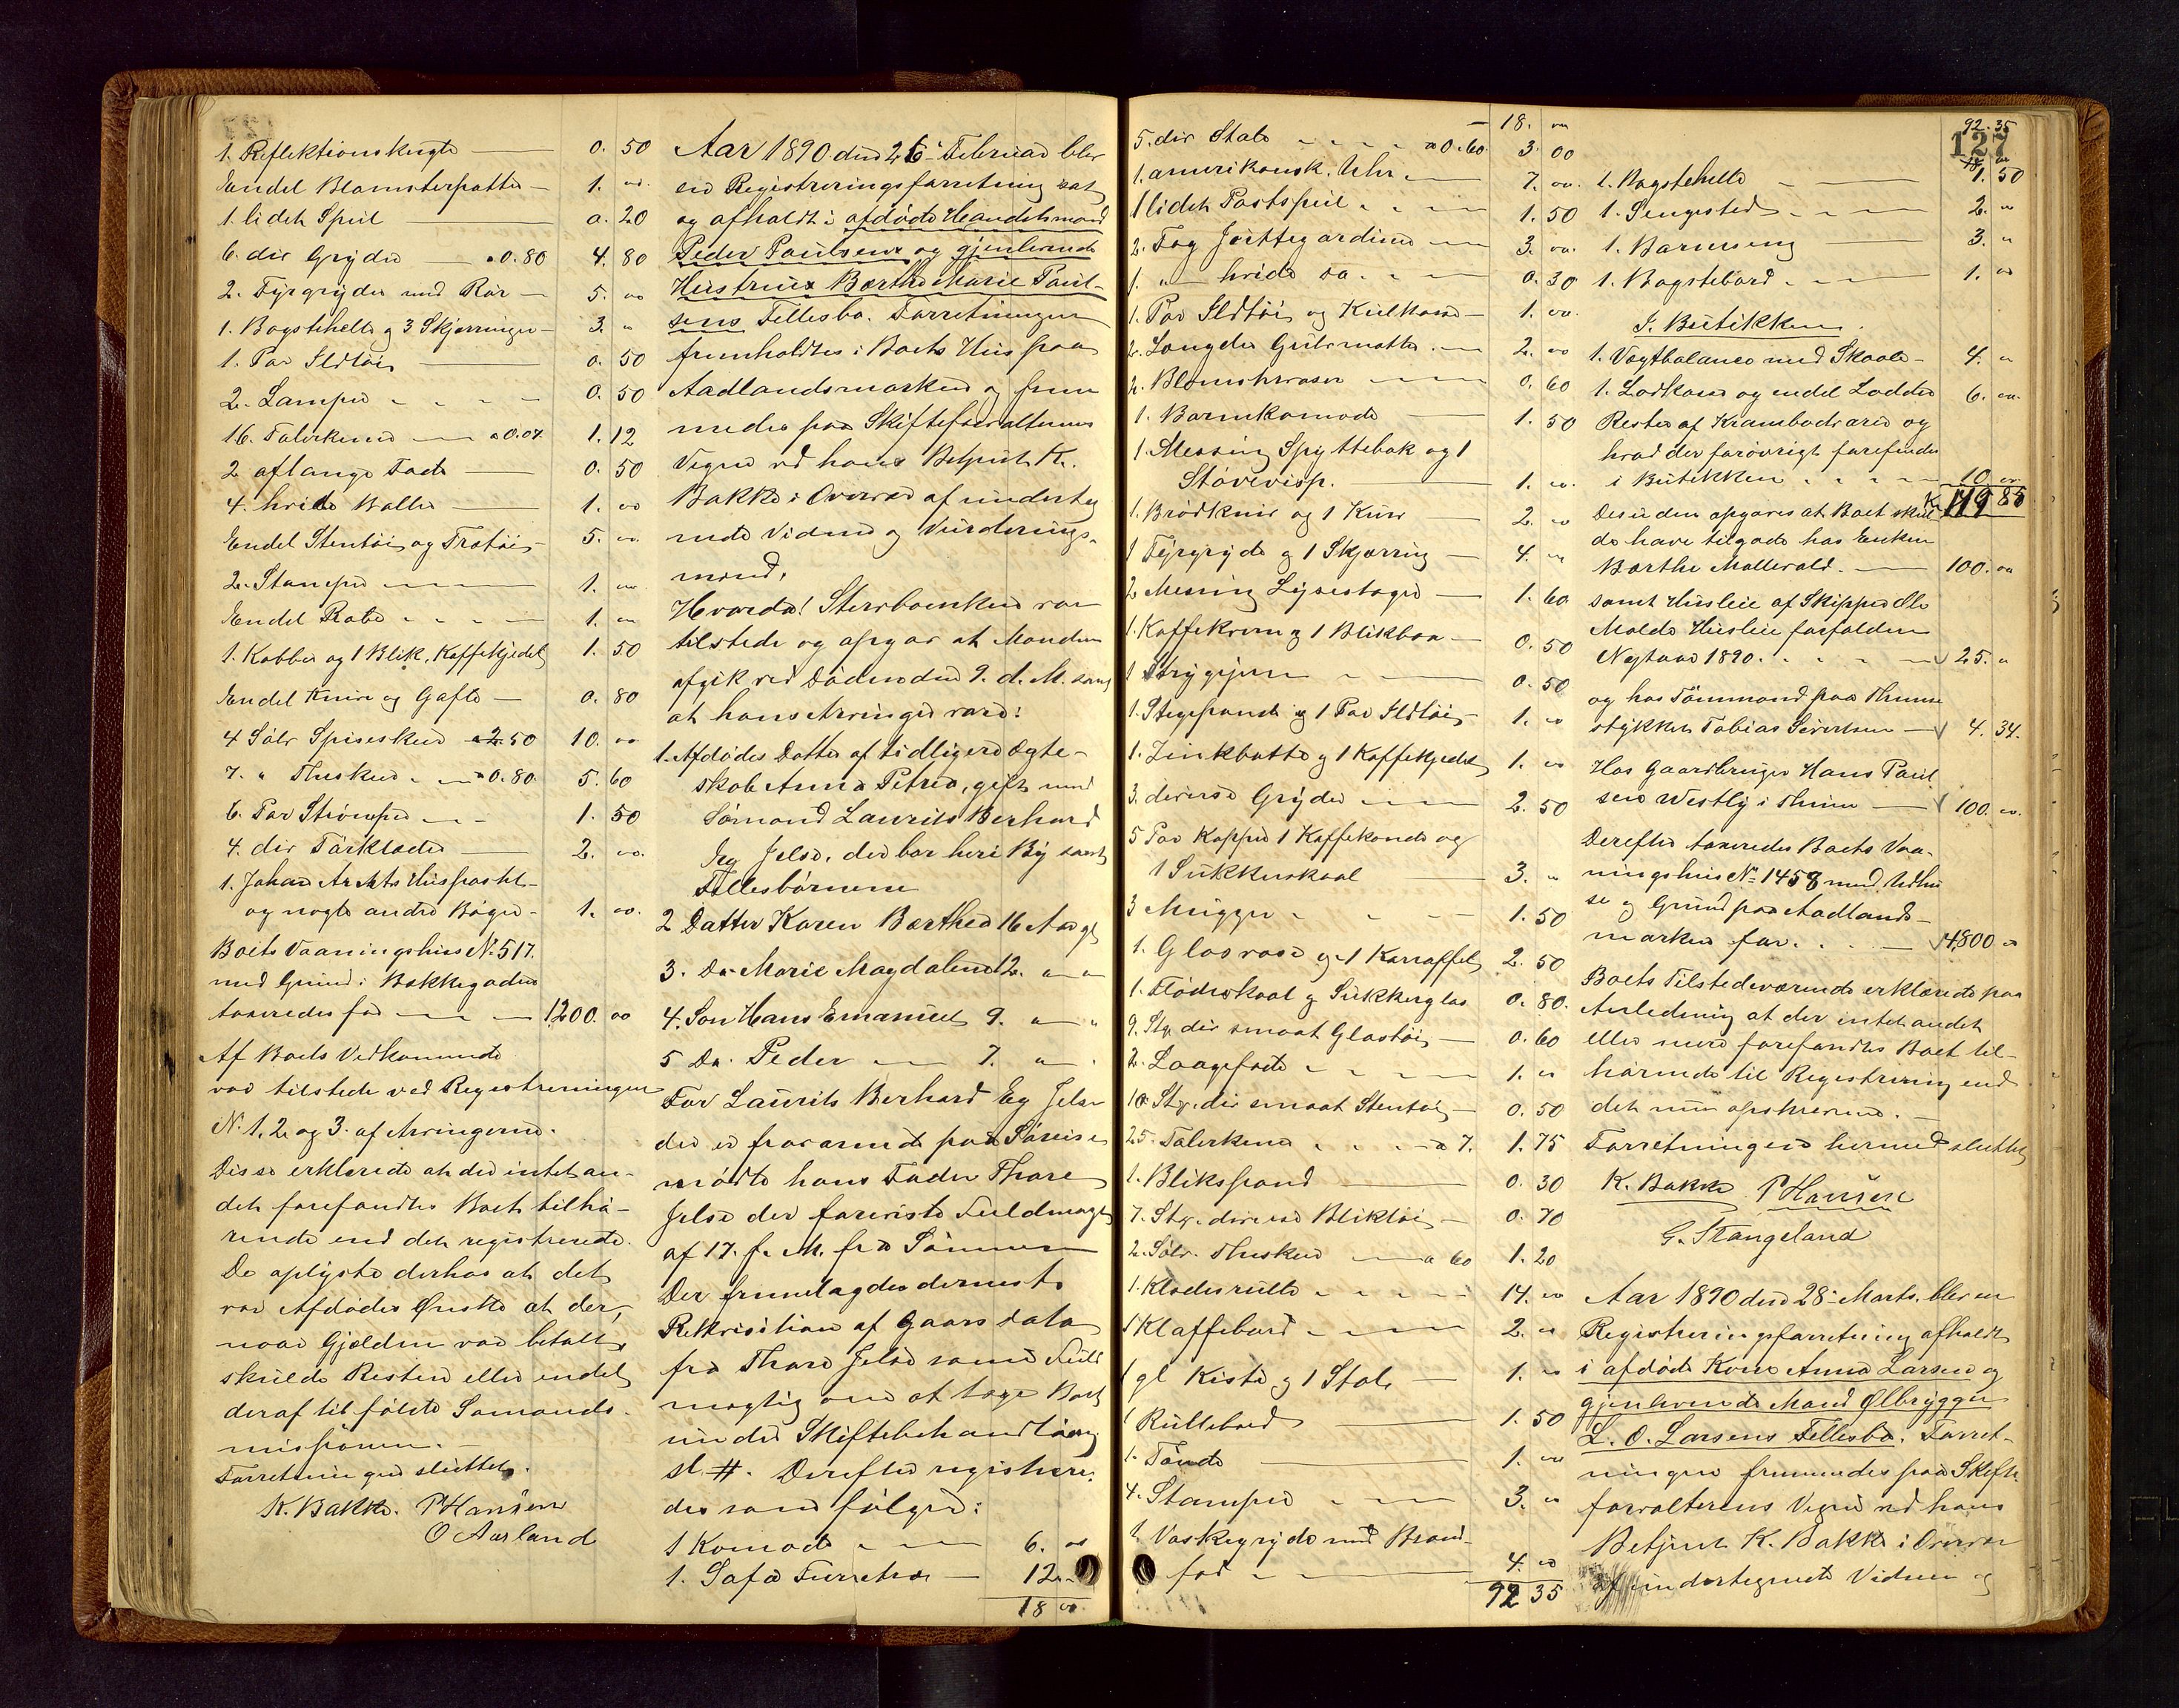 1. Reflektionslugte — 0. 50
Endel Blomsterpotter — 1. oo
1. lidet Speil — 0. 20
6. div Gryder — a 0.80 4. 80
2. Fyrgryder med Rør — 5. oo
1. Bagstehelle og 3 Skjerringer — 3. "
1. Par Ildtøi — 0. 50
2. Lamper — 0. 50
16. Talerkener — a 0.07 1. 12
2 aflange Fade — 0. 50
4. hvide Boller — 1. oo
Endel Stentøi og Trætøi — 5. oo
2. Stamper — 1. oo
Endel — 1. oo
1. Kobber og 1 Blik, Kaffekjedel 1. 50
Endel Knive og Gafle — 0. 80
4 Sølv Spiseskeer a 2.50 10. oo
7. " Theskeer a 0.80 5. 60
6. Par Strømper — 1. 50
4. div Tørklæder — 2. oo
1. Johan Arndts Huspostil
og nogle andre Bøger — 1. oo
Boets Vaaningshus No. 517.
med Grund i Bakkegaden
taxeredes for — 1200. oo
Af Boets Vedkommende
var tilstede ved Registreringen
No. 1, 2 og 3 af Arvingerne.
Disse erklærede at der intet an-
det forefandtes Boet tilhø-
rende end det registrerede.
De oplyste derhos at det
var Afdødes Ønske at der,
naar Gjælden var betalt,
skulde Resten eller endel
deraf tilfalde Sømands-
missionen. —
Forretningen sluttet.
K. Bakke. P Hansen
O Aarland
Aar 1890 den 26 Februar blev
en Registreringsforretning sat
og afholdt i afdøde Handelsmand
Peder Paulsens og gjenlevende
Hustru Berthe Marie Paul-
sens Fellesbo. Forretningen
fremholdtes i Boets Hus paa
Aadlandsmarken og frem
medes paa Skifteforvalterens
Vegne ved hans Betjent K.
Bakke i Overvær af underteg
nede Vidne og Vurderings-
mænd.
Hvorda! Stervboenken var
tilstede og opgav at Manden
afgik ved Døden den 9. d. M. samt
at hans Arvinger vare:
1. Afdødes Datter af tidligere Ægte-
skab Anna Petrea, gift med
Sømand Laurits Berhard
Eeg Jelse, der bor her i By samt
Fellesbørnene
2 Datter Karen Berthea 16 Aar gl
3. Do. Marie Magdalene 12. " "
4. Søn Hans Emanuel 9. " "
5 Do. Peder — 7. " "
For Laurits Berhard Eg Jelse
der er fraværende paa Søreise
mødte hans Fader Thore
Jelse der foreviste Fuldmagt
af 17. f. M. fra Sønnen
Der fremlagdes dernest
Rekvisition af Gaars dato
fra Thore Jelse som Fuld
mægtig om at tage Boet
under Skiftebehandling
sl. #. Derefter registrere-
des som følger:
1 Komode — 6. oo
1. Sofa Furretræ — 12. "
18 oo
18. oo
5. div Stole — a 0.60. 3. 00
1. amerikansk. Uhr — 7. oo.
1 lidet Postspeil — 1. 50
2. Fag Jortegardiner — 3. oo.
1. " hvide do. — 0. 30
1. Par Ildtøi og Kulkasse — 1. oo.
2. Længder Gulvmatter — 2. oo
2. Blomstervaser — 0. 60
1. Barnekomode — 1. 50
1. Messing Spyttebak og 1
Støvevisp. — 1. oo.
1. Brødkniv og 1 Kurv — 2. oo
1 Fyrgryde og 1 Skjerring — 4. "
2 Messing Lysestager — 1. 60
1. Kaffekvern og 1 Blikboa — 0. 50
1 Strygejern — 0. 50
1. Stegepande og 1 Par Ildtøi — 1. oo
1. Zinkbøtte og 1 Kaffekjedel 1. oo
3. diverse Gryder — 2. 50
5 Par Kopper 1 Kaffekande og
1 Sukkerskaal — 3. "
3 Mugger — 1. 50
1. Glasvase og 1 Karraffel 2. 50
1. Flødeskaal og Sukkerglas 0. 80.
9. Stg. div smaat Glastøi — 0. 60
2. Laagefade — 1. "
10 Stg. div smaat Stentøi — 0. 50
25. Talerkener — a 7. 1. 75
1. Blikspand — 0. 30
7. Stg. diverse Bliktøi — 0. 70
2. Sølv. Theskeer — a 60 1. 20
1. Klædesrulle — 14. oo
1 Klaffebord — 2. "
1 gl Kiste og 1 Stol — 1. "
1 Rullebord — 1. 50
1. Tønde — 1. oo
4. Stamper — 3. "
1. Vaskegryde med Brand-
fod — 4. oo
92 35
92. 35
127
1. Bagstehelle — 1. 50
1. Sengested — 2. "
1. Barneseng — 3. "
1. Bagstebord — 1. oo
I. Butikken.
1. Vægtbalance med Skaale — 4. "
1. Lodkasse og endel Lodder 6. oo.
Rester af Kramboedvarer og
hvad der forøvrigt forefindes
i Butikken — 10 oo
Kr 119 85
Desuden opgaves at Boet skul
de have tilgode hos Enken
Berthe Mollevald. — 100. oo
samt Husleie af Skipper Ole
Molde Husleie forfalden
Nytaar 1890. — 25. "
og hos Tømmand paa Thime
stykket Tobias Sivertsen — 4. 34.
Hos Gaardbruger Hans Paul
sen Westly i Thime — 100. oo.
Derefter taxeredes Boets Vaa-
ningshus No. 1458 med Udhu
se og Grund paa Aadlands-
marken for — 4800 "
Boets Tilstedeværende erklærede paa
Anledning at der intet andet
eller mere forefandtes Boet til-
hørende til Registrering end
det nu opskrevne. —
Forretningen hermed sluttet
K. Bakke P Hansen
G. Stangeland
Aar 1890 den 28 Marts. blev en
Registreringsforretning afholdt
i afdøde Kone Anna Larsen og
gjenlevende Mand Ølbrygger
L. O. Larsens Fellesbo. Forret-
ningen fremmedes paa Skifte
forvalterens Vegne ved hans
Betjent K. Bakke i Overvær
af undertegnede Vidner og